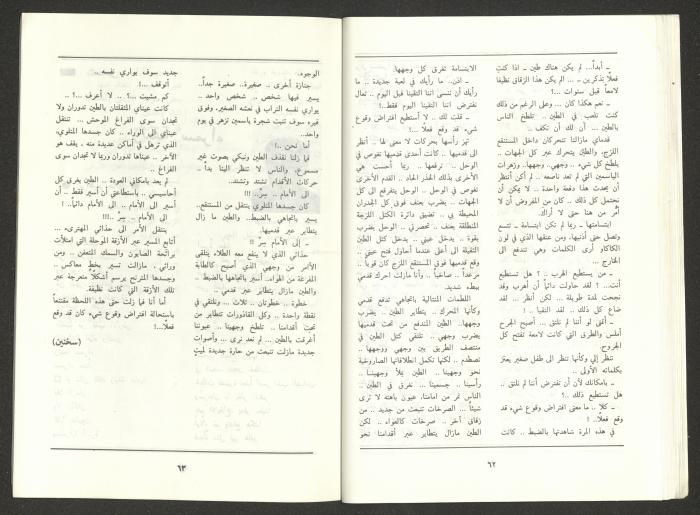 ـ أبداً... لم يكن هناك طين ـ اذا كنت
فعلاً تذكرين ـ ... الم يكن هذا الزقاق نظيفا
لامعاً قبل سنوات ...؟
ـ نعم هكذا كان ... وعلى الرغم من ذلك
كنت تلعب في الطين .. تلطخ الناس
بالطين ... أن لك أن تكف ..
قدماي مازالتا تتحركان داخل المستنقع
اللزج، والطين يتحرك عبر كل الجهات ..
يلطخ كل شيء .. وجهي.. وجهها.. وزهرات
الياسمين التي لم تعد ناصعة .. لم أكن أنتظر
أن يحدث هذا دفعة واحدة .. لا يمكن أن
نحتمل كل ذلك .. كان من المفروض أن لا
أمُر من هنا حتى لا أراك.
ابتسامتها .. ربما لم تكن ابتسامة .. تتسع
وتصل حتى أذنيها، ومن عنقها الذي في لون
الكاكاو أرى الكلمات وهي تندفع الى
الخارج ...
ـ من يستطيع الهرب .. ؟ هل تستطيع
أنت... ؟ لقد حاولت دائماً أن أهرب وقد
نجحت لمدة طويلة ... لكن أنظر .. لقد
ضاع كل ذلك .. لقد التقينا .. !
ـ أتمنى لو أننا لم نلتق .. أصبح الجرح
أملس والطرق التي كانت لامعة تفتح كل
الجروح.
تنظر إلي وكأنها تنظر الى طفل صغير يعثر
بكلماته الأولى ..
ـ بامكانك لأن أن نفترض أننا لم نلتق ..
هل تستطيع ذلك ..؟
ـ كلا .. ما معنى افتراض وقوع شيء قد
وقع فعلاً.. ؟
في هذه المرة شاهدتها بالضبط .. كانت
الابتسامة تفرق كل وجهها.
ـ اذن.. ما رأيك في لعبة جديدة .. ما
رأيك أن ننسى اننا التقينا قبل اليوم .. تعال
نفترض اننا التقينا اليوم فقط..!
ـ قلت لك .. لا أستطيع افتراض وقوع
شيء قد وقع فعلاً ...!
تهز رأسها بحركات لا معنى لها .. أنظر
الى قدميها .. كانت أحدى قدميها تغوص في
الوحل .. ترفعها .. ربما أحست هي
الأخرى بذلك الجذر الحاد .. القدم الأخرى
تغوص في الوحل .. الوحل يندفع الى كل
الجهات .. يضرب بعنف فوق كل الجدران
المحيطة بي .. تضيق دائرة الكتل اللزجة
المنطلقة بعنف.. تحصرني .. الوحل يضرب
بقوة .. يدخل عيني .. يدخل كتل الطين
الثقيلة الى أعلى عندما أحاول فتح عيني ..
وقع قدميها فوق المستنقع اللزج كان قوياً ..
مرعداً .. صاخباً .. وأنا مازلت احرك قدمي
ببطء شديد.
اللطمات المتتالية باتجاهي تدفع قدمي
وكأنها المحرك .. الطين يتطاير .. يضرب
وجهها.. الطين المندفع من تحت قدميها
يضرب وجهي .. تلتقي كتل الطين في
منتصف الطريق بين وجهي ووجهها ..
تصطدم .. لكنها تكمل انطلاقاتها الصاروخية
نحو وجهينا .. الطين يملأ وجهينا ..
رأسينا .. جسمينا ... نغرق في الطين ..
الناس تمر من امامنا، عيون باهتة لا ترى
شيئاً... الصرخات تنبعث من جديد .. من
زقاق آخر .. صرخات كالعواء.. لكن
الطين مازال يتطاير عبر أقدامنا نحو
٦٢
الوجوه.
جنازة أخرى .. صغيرة.. صغيرة جداً..
يسير فيها شخص .. شخص واحد ..
يواري نفسه التراب في نعشه الصغير، وفوق
قبره سوف تنبت شجرة ياسمين تزهر في يوم
واحد..
أما نحن ..!
فما زلنا نقذف الطين ونبكي بصوت غير
مسموع، والناس لا تنظر الينا بدأ ..
حركات الأقدام تشتد وتشتد.
الى الأمام .. سِرْ .. !!!
كان جسدها المتلوي ينتقل من المستنقع..
يسير باتجاهي بالضبط.. والطين ما زال
يتطاير عبر قدميها.
ـ إلى الأمام سِرْ !!
حذائي الذي لا ينفع معه الطلاء يتلقى
الأامر من وجهي الذي أصبح كالطابة
المفرغة من الهواء.. أسير باتجاهها بالضبط ..
والطين مازال يتطاير عبر قدمي ..
خطوة .. خطوتان .. ثلاث ... ونلتقي في
نقطة واحدة .. وكل القاذورات تتطاير من
تحت أقدامنا .. تلطخ وجهينا .. عيوننا
أغرقت بالطين ... لم تعد ترى .. وأصوات
جديدة مازالت تنبعث من حارة جديدة لميتٍ
جديد سوف يواري نفسه ..
أتوقف ..!
كم مشيت ...؟ .. لا أعرف.. ..!
كانت عيناي المثقلتان بالطين تدوران ولا
تجدان سوى الفراغ الموحش ... تنتقل
عيناي الى الوراء .. كان جسدها المتلوي،
الذي ترهل في أماكن عديدة منه ، يقف هو
الآخر .. عيناها تدوران وربما لا تجدان سوى
الفراغ.
لم يعد بامكاني العودة .. الطين يغرق كل
أحاسيسي .. باستطاعتي أن أسير فقط .. أن
أسير الى الأمام .. الى الأمام دائماً.. !
الى الأمام .. سِرْ .. !!!
ينتقل الأمر الى حذائي المهترىء ...
أتابع المسير عبر الأزقة الموحلة التي امتلأت
برائحة الصابون والسمك المتعفن .. ومن
ورائي ، مازالت تسير بخط معاكس ..
وجسدها المترنح يرسم أشكالاً متعرجة عبر
تلك الأزقة التي كانت نظيفة.
أما أنا فما زلت حتى هذه اللحظة مقتنعاً
باستحالة افتراض وقوع شيء كان قد وقع
فعلاً...!
(سخنين)
٦٣